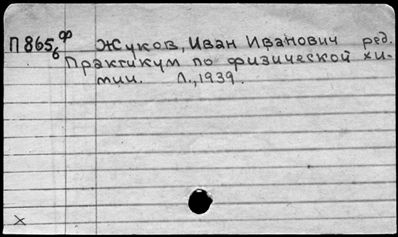 П865ф Жуков, Иван Иванович ред.
б Практикум по физической хи-
мии. Л., 1939.
x